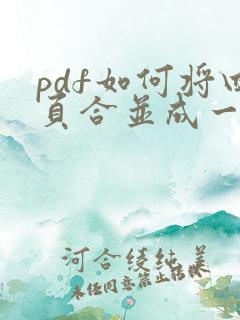 pdf如何将四
页合並成一
河合綾純美
未经同意禁止转载